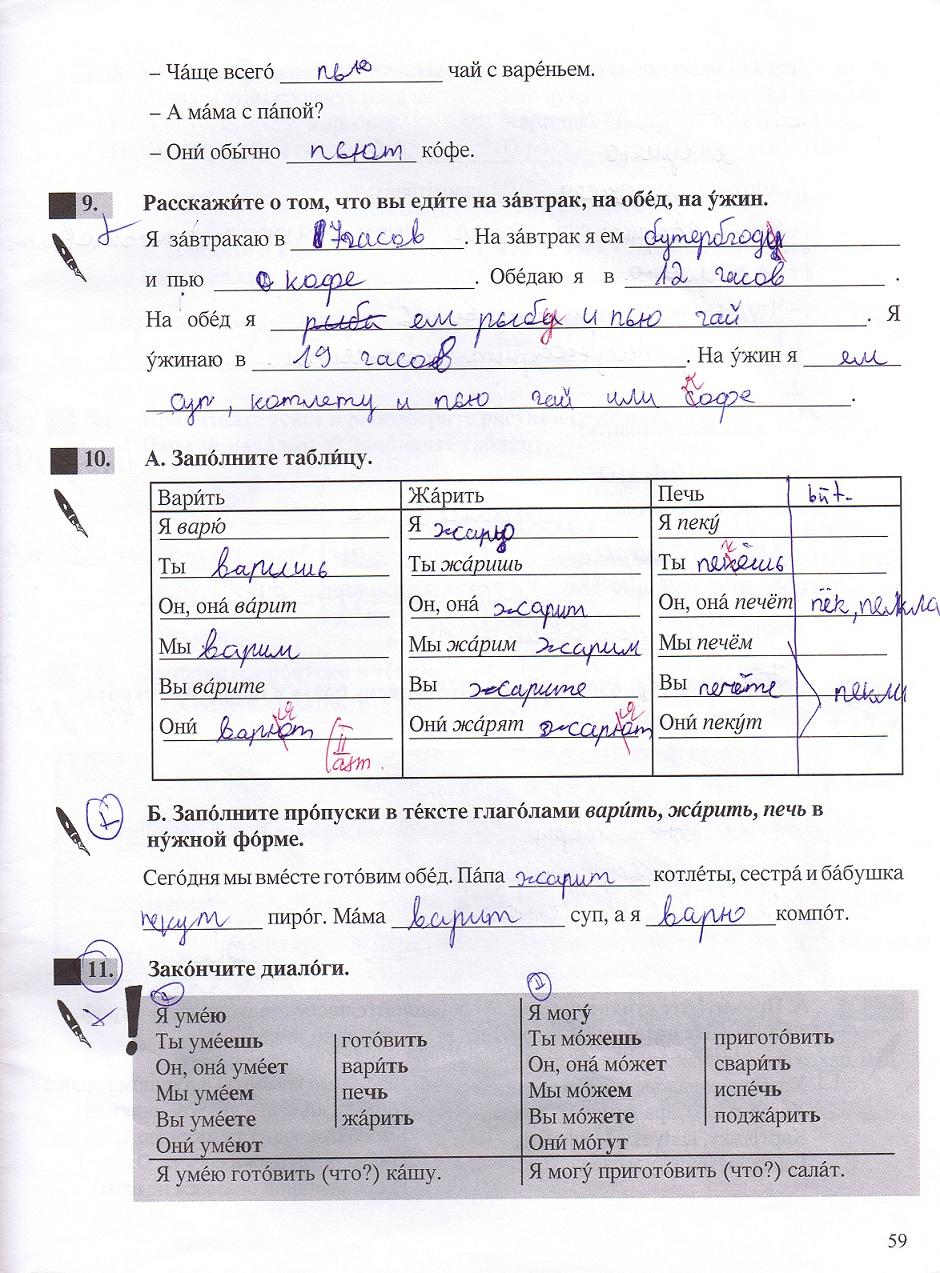 – Ча́ще всего́ пью чай с варе́ньем.
– А ма́ма с па́пой?
– Они́ обы́чно пьют ко́фе.
9. Расскажи́те о том, что вы еди́те на за́втрак, на обе́д, на у́жин.
Я за́втракаю в 7 часов. На за́втрак я ем бутерброды
и пью кофе. Обе́даю я в 12 часов.
На обе́д я рыба ем рыбу и пью чай. Я
у́жинаю в 19 часов. На у́жин я ем
суп, котлету и пью чай или кофе.
10. А. Запо́лните табли́цу.
Вари́ть Жа́рить Печь būt.
Я варю́ Я жарю Я пеку́
Ты варишь Ты жа́ришь Ты печёшь
Он, она́ ва́рит Он, она́ жарит Он, она́ печёт пёк, пекла
Мы варим Мы жа́рим жарим Мы печём
Вы ва́рите Вы жарите Вы печёте пекли
Они́ варят Они́ жа́рят жарят Они́ пеку́т
II
ast.
Б. Запо́лните про́пуски в те́ксте глаго́лами вари́ть, жа́рить, печь в
ну́жной фо́рме.
Сего́дня мы вме́сте гото́вим обе́д. Па́па жарит котле́ты, сестра́ и ба́бушка
пекут пиро́г. Ма́ма варит суп, а я варю компо́т.
11. Зако́нчите диало́ги.
! I II
Я уме́ю Я могу́
Ты уме́ешь гото́вить Ты мо́жешь пригото́вить
Он, она́ уме́ет вари́ть Он, она́ мо́жет свари́ть
Мы уме́ем печь Мы мо́жем испе́чь
Вы уме́ете жа́рить Вы мо́жете поджа́рить
Они́ уме́ют Они́ мо́гут
Я уме́ю гото́вить (что?) ка́шу. Я могу́ пригото́вить (что?) сала́т.
59